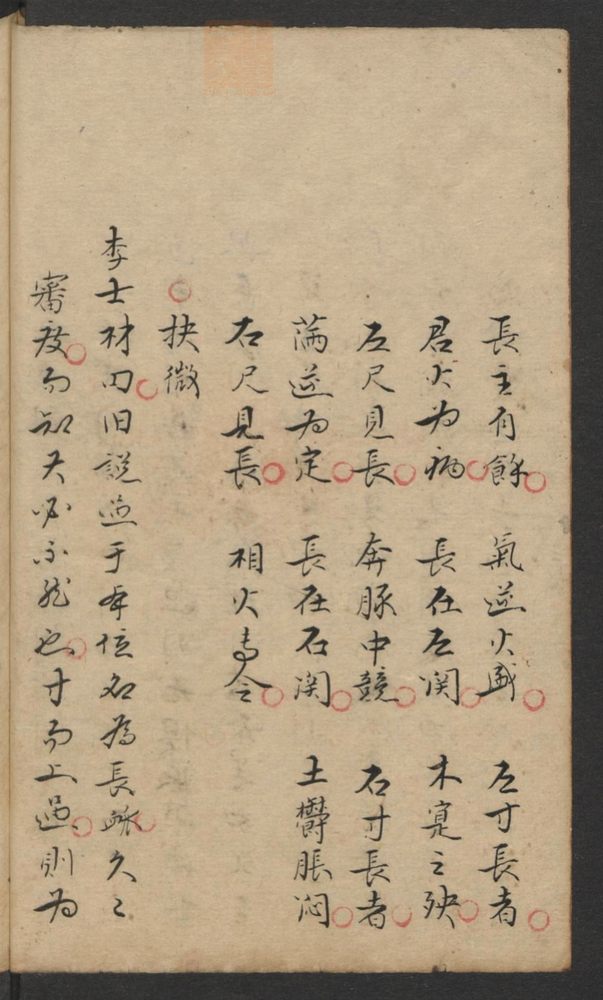 長主有餘 氣逆火盛 左寸長者
君火为病 長在左関 木寔之殃
左尺見長 奔豚中競 右寸長者
满逆为定 長在右関 土欝脹闷
右尺見長 相火专令
扶微
李士材曰旧説過于夲位名為長脉久〻
審度而知其必不然也寸而上過則为